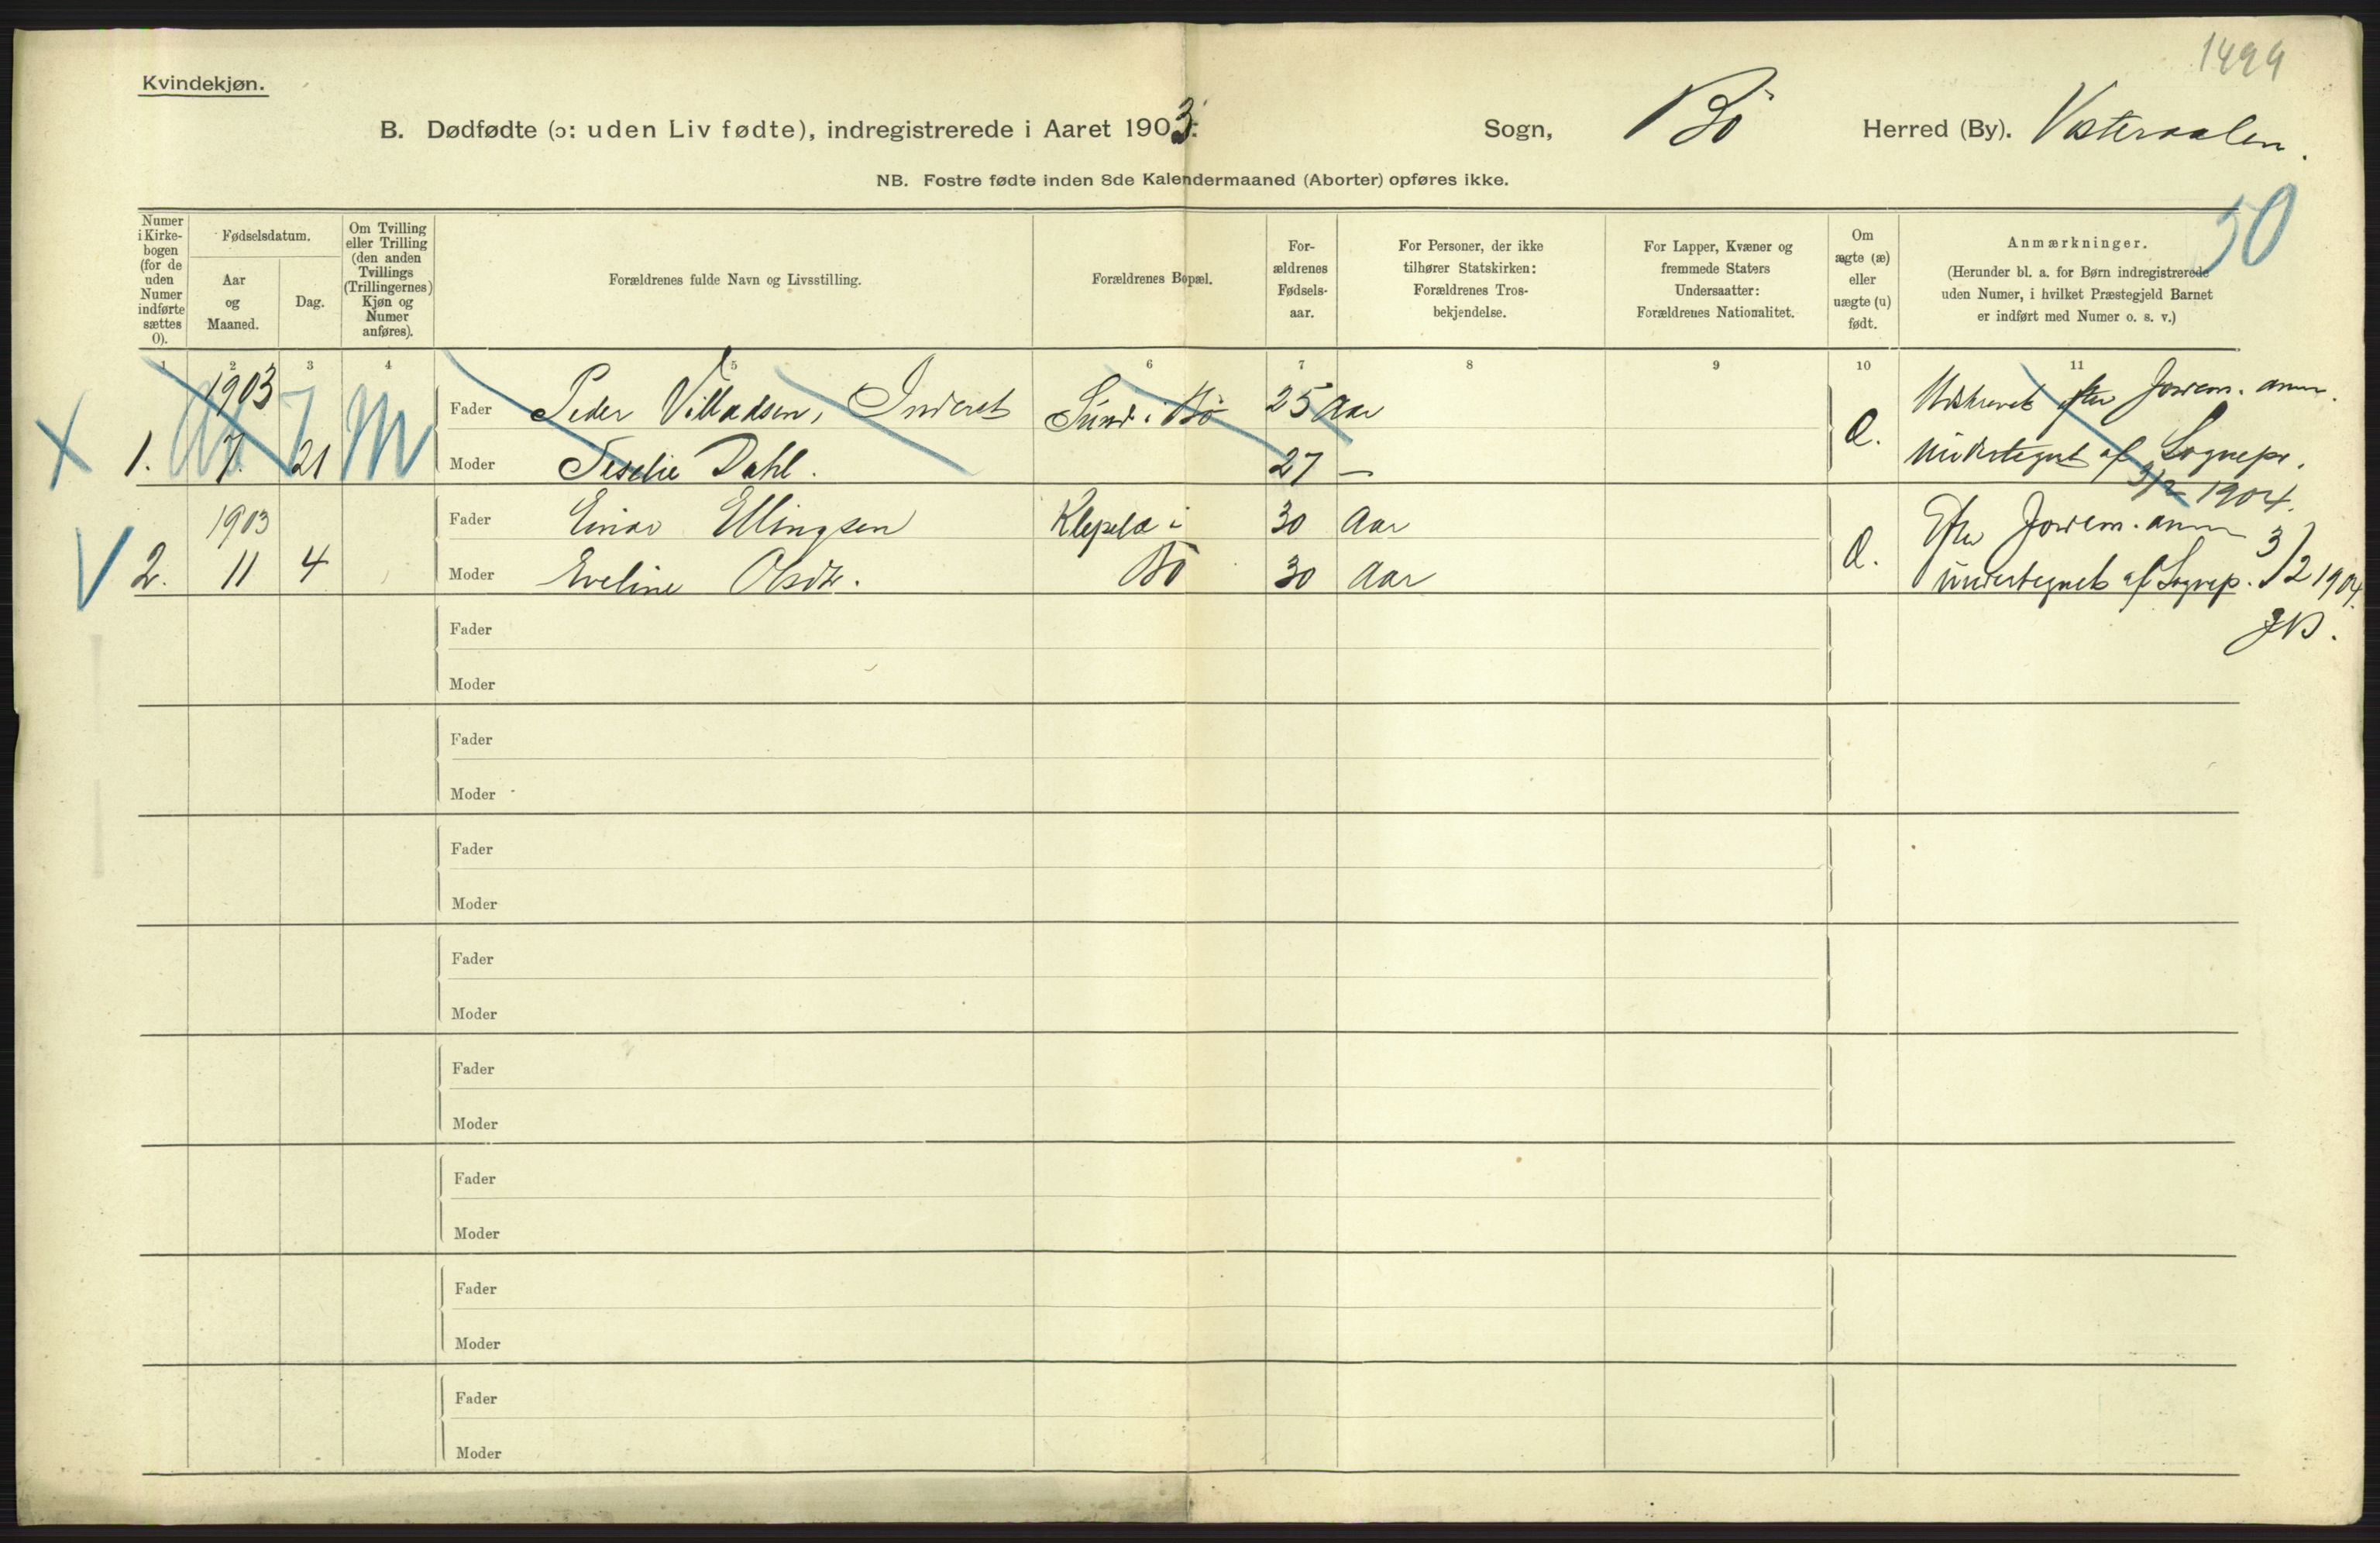 1494
Kvindekjøn.
B. Dødfødte (ɔ: uden Liv fødte), indregistrerede i Aaret 1903. Sogn, Bö Herred (By). Vesteraalen.
NB. Fostre fødte inden 8de Kalendermaaned (Aborter) opføres ikke.
50
Numer i Kirkebogen (for de uden Numer indførte sættes 0).
Fødselsdatum.
Aar og Maaned.
Dag.
Om Tvilling eller Trilling (den anden Tvillings (Trillingernes) Kjøn og Numer anføres).
Forældrenes fulde Navn og Livsstilling.
Forældrenes Bopæl.
Forældrenes Fødselsaar.
For Personer, der ikke tilhører Statskirken: Forældrenes Trosbekjendelse.
For Lapper, Kvæner og fremmede Staters Undersaatter: Forældrenes Nationalitet.
Om ægte (æ) eller uægte (u) født.
Anmærkninger.
(Herunder bl. a. for Børn indregistrerede uden Numer, i hvilket Præstegjeld Barnet er indført med Numer o. s. v.)
1 2 3 4 5 6 7 8 9 10 11
1903
Fader Peder Villadsen, Inderst Sund i Bö 25 Aar efter Jordem. anm.
X 1. 7. 21 M Moder Dahl. 27 — undertegnet af Sognepr.
3/2 1904.
1903 Fader Einar Ellingsen i 30 Aar Efter Jordem. anm
V 2. 11 4 Moder Eveline Olsdtr. Bö 30 Aar undertegnet af Sognep. 3/2 1904.
Fader
Moder
Fader
Moder
Fader
Moder
Fader
Moder
Fader
Moder
Fader
Moder
Fader
Moder
Fader
Moder